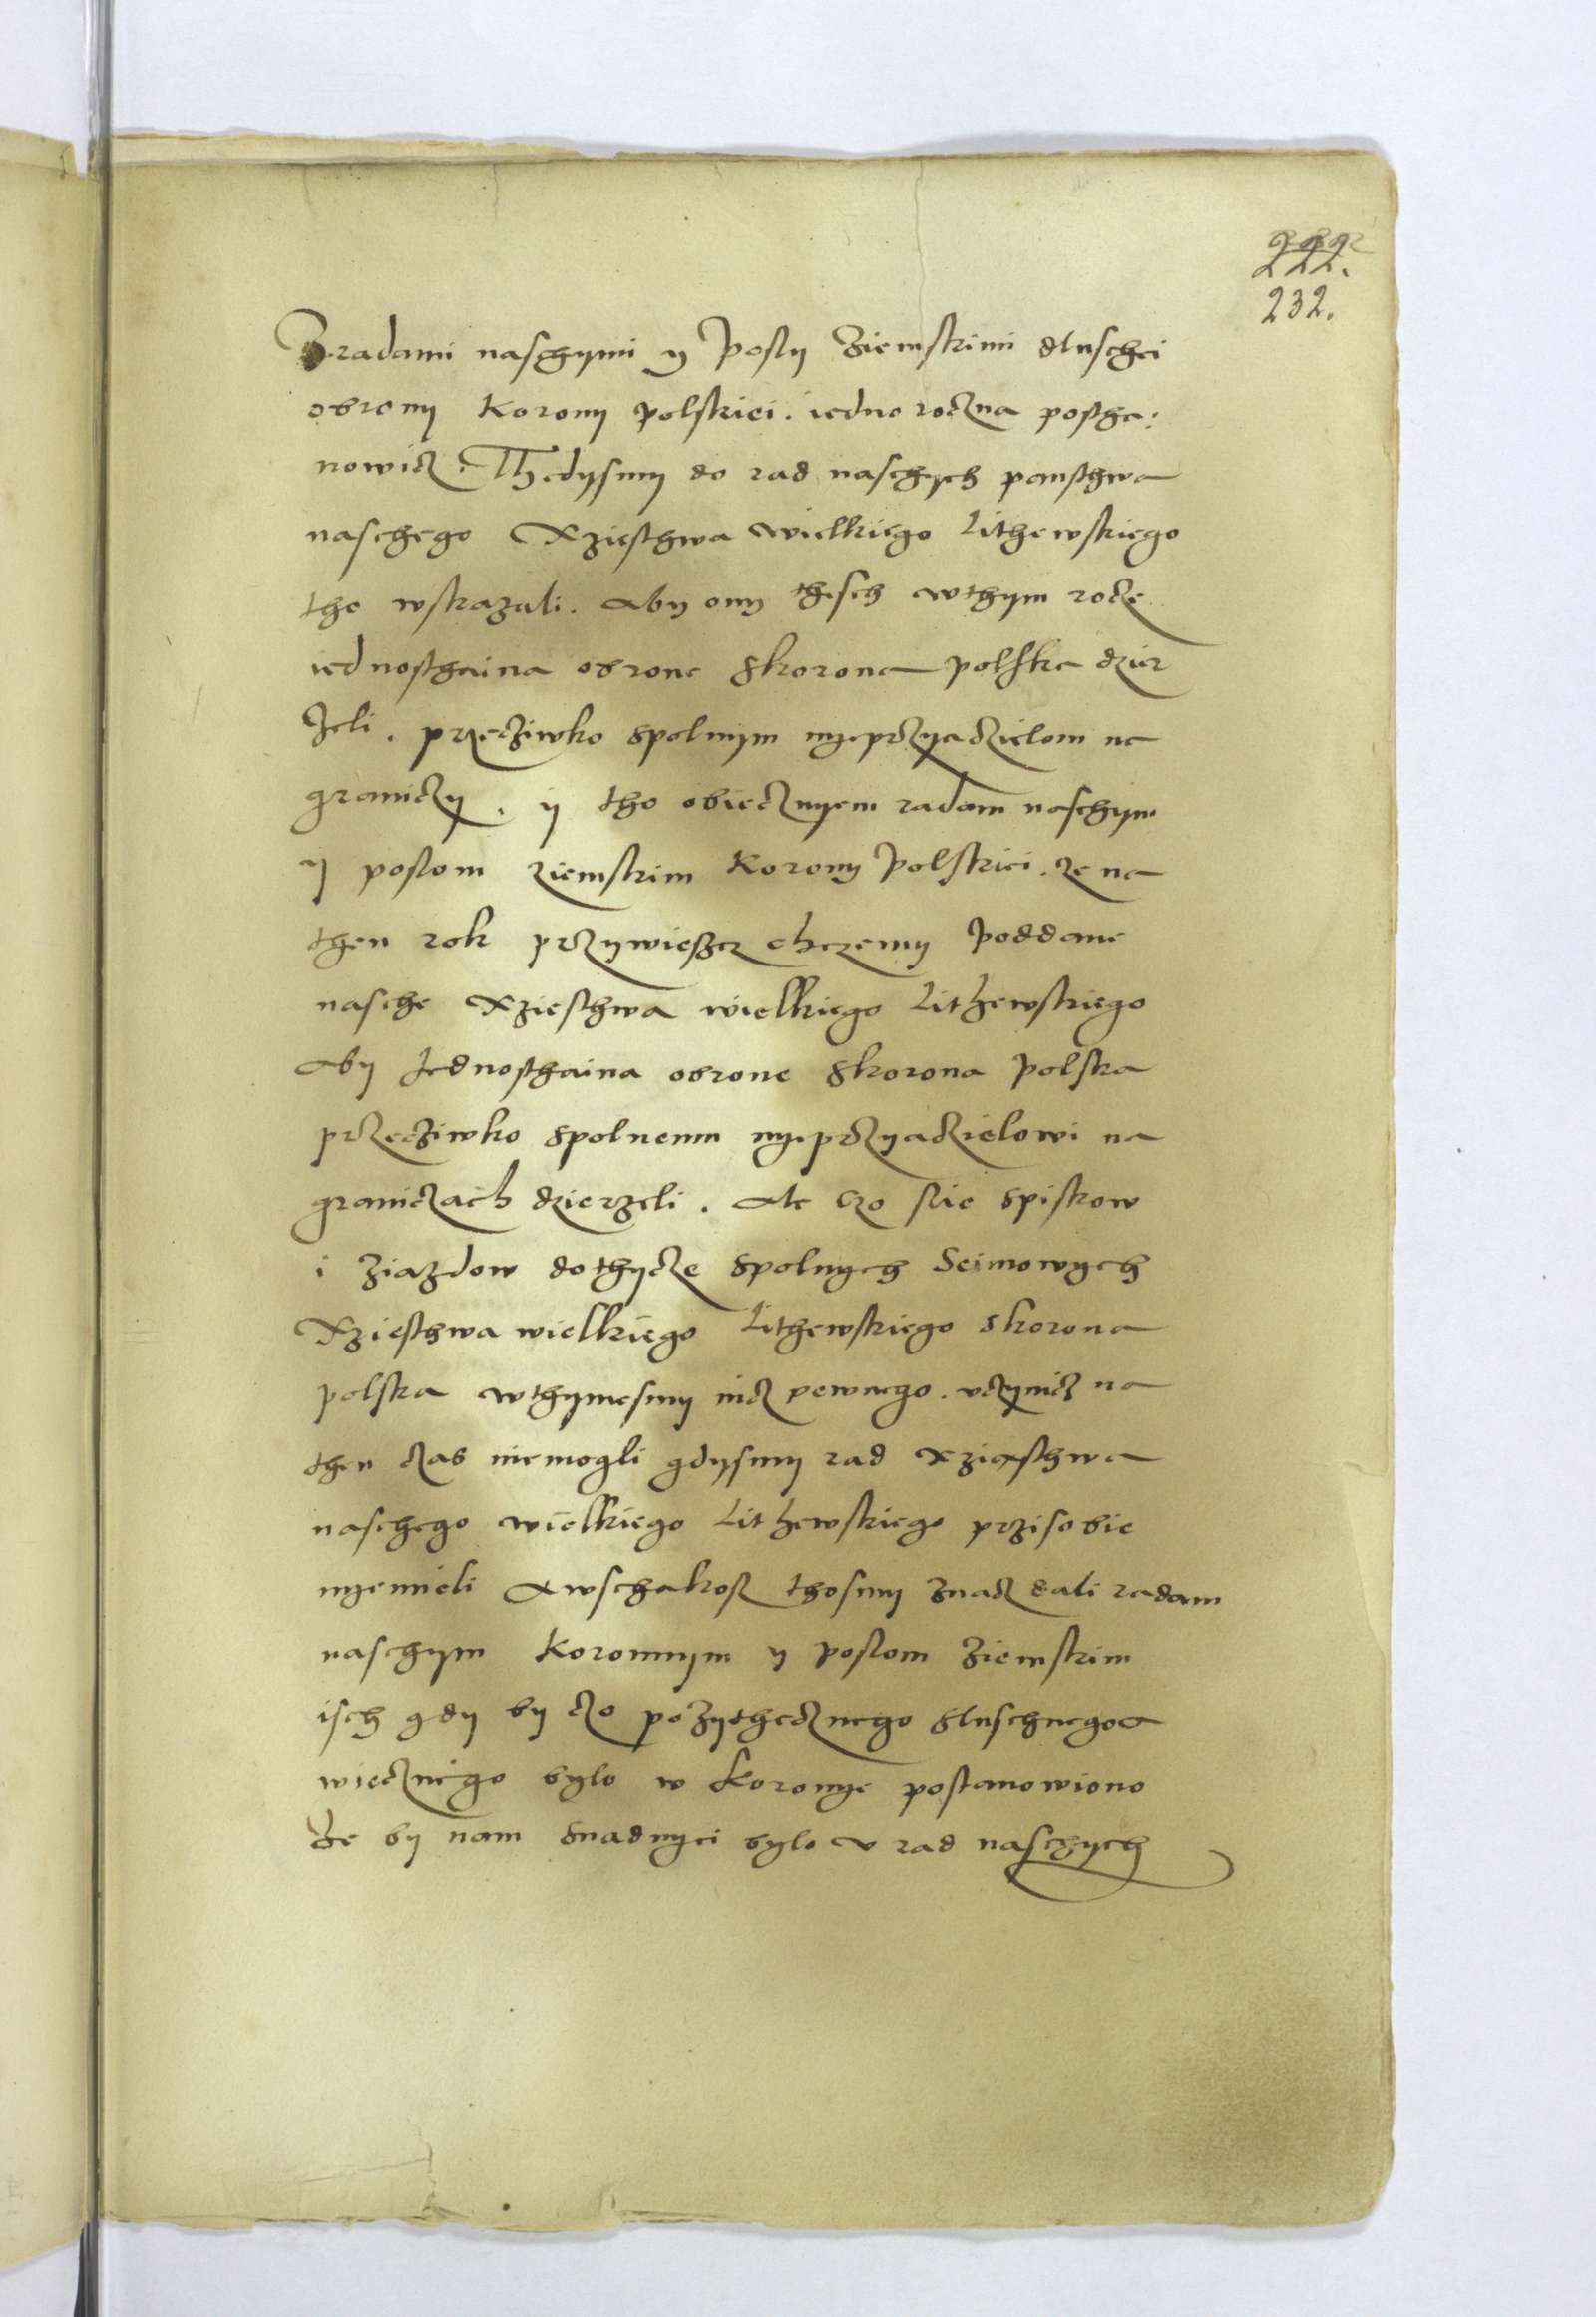 222.
232.
Z radami naschymi y Posly Ziemskimi dluschei
obrony Korony polskiei. iedno roczna postha:
nowicz. Thedysmy do rad naschych pansthwa
naschego Xziesthwa wielkiego Lithewskiego
tho wskazali. aby ony thesch wthym rocze
iednosthaina obrone skorona polska dzier
zeli. przecziwko spolnym nyeprzyaczielom na
graniczy. y tho obiecznyem radam naschym
y poslom ziemskim Korony Polskiei. ze na
then rok przywieszcz chczemy Poddane
nasche Xziesthwa wielkiego Lithewskiego
aby Iednosthaina obrone skorona polska
przecziwko spolnemu nyeprzyaczielowi na
graniczach dzierzeli. ale czo slie spiskow
i ziazdow dothycze spolnych Seimowych
Xziesthwa wielkiego Lithewskiego skorona
polska wthymesmy nicz pewnego. uczynicz na
then czas niemogli gdysmy rad Xziesthwa
naschego wielkiego Lithewskiego przisobie
nyemieli awschakosz thosmy znacz dali radam
naschym Koronnym y poslom Ziemskim
isch gdy by czo pozythecznego sluschnego a
wiecznego bylo w Koronye postanowiono
Ze by nam snadnyei bylo v rad naschych